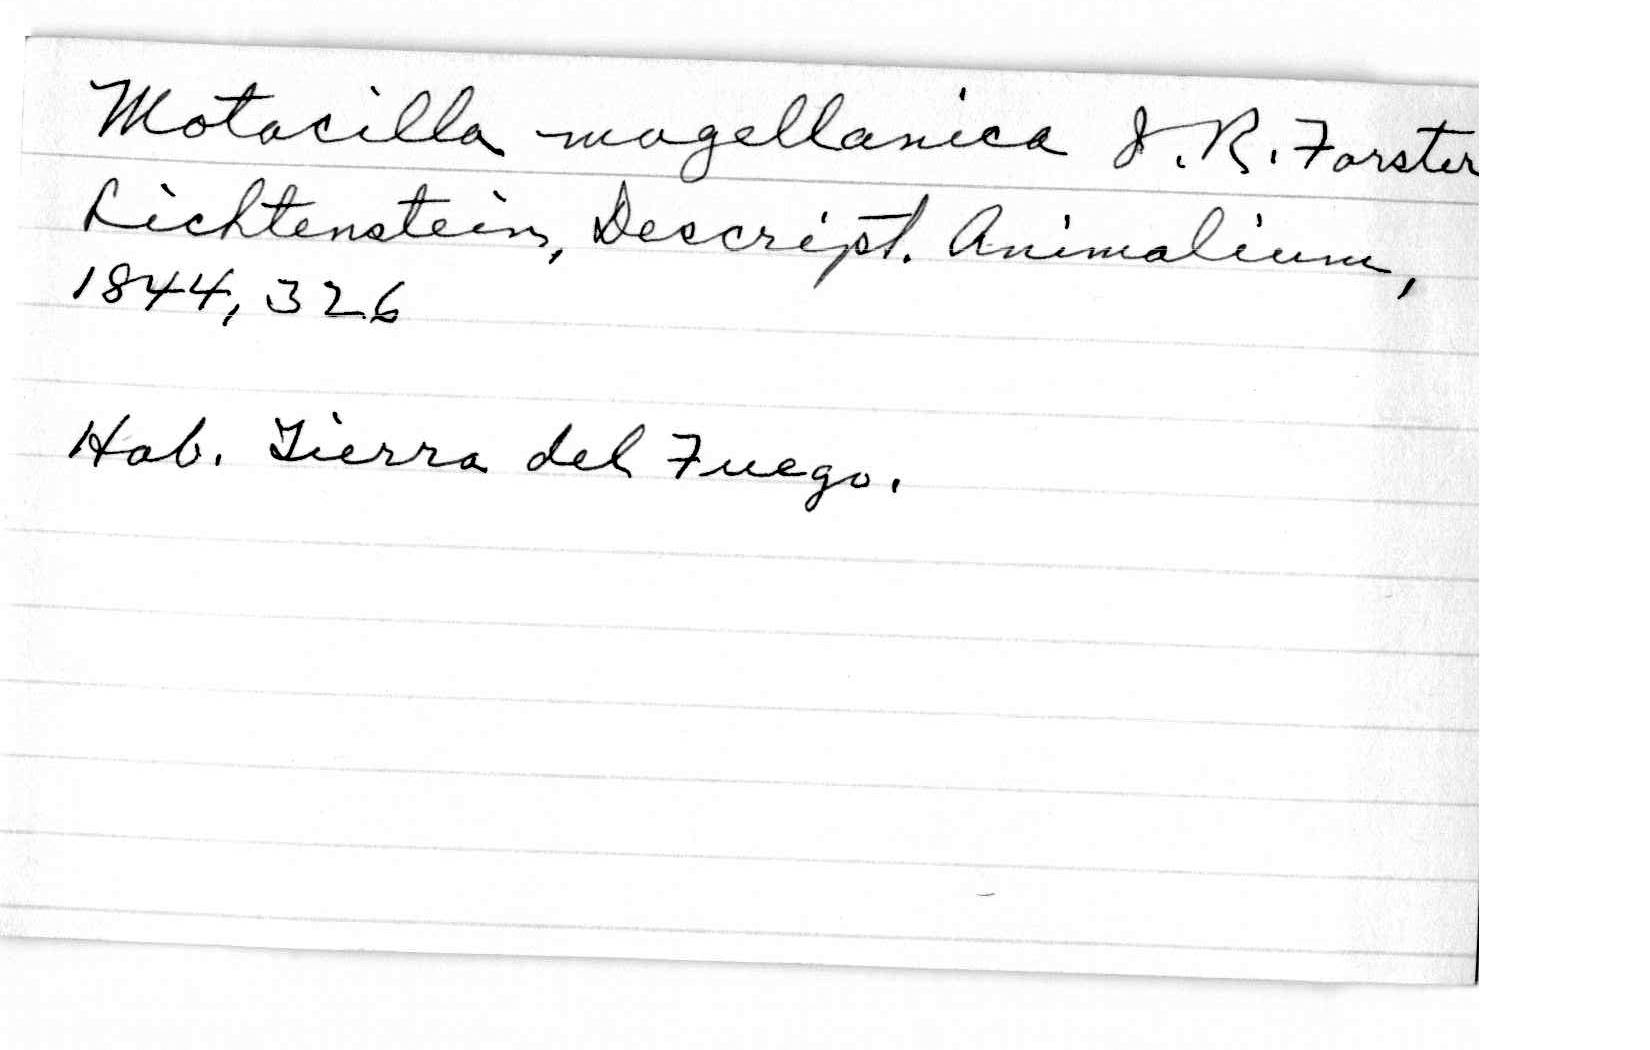 Motacilla magellanica J. R. Forster
Lichtenstein, Descript. Animalium,
1844, 326
Hab. Tierra del Fuego.